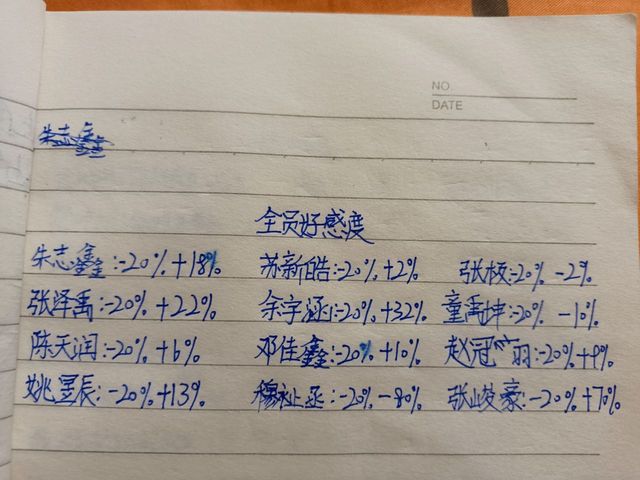 NO.
DATE
朱志鑫
全员好感度
朱志鑫:-20%+18% 苏新皓:-20%+2% 张极:-20%-2%
张泽禹:-20%+22% 余宇涵:-20%+32% 童禹坤:-20%-10%
陈天润:-20%+6% 邓佳鑫:-20%+10% 赵冠羽:-20%+9%
姚昱辰:-20%+13% 穆祉丞:-20%-80% 张峻豪:-20%+70%